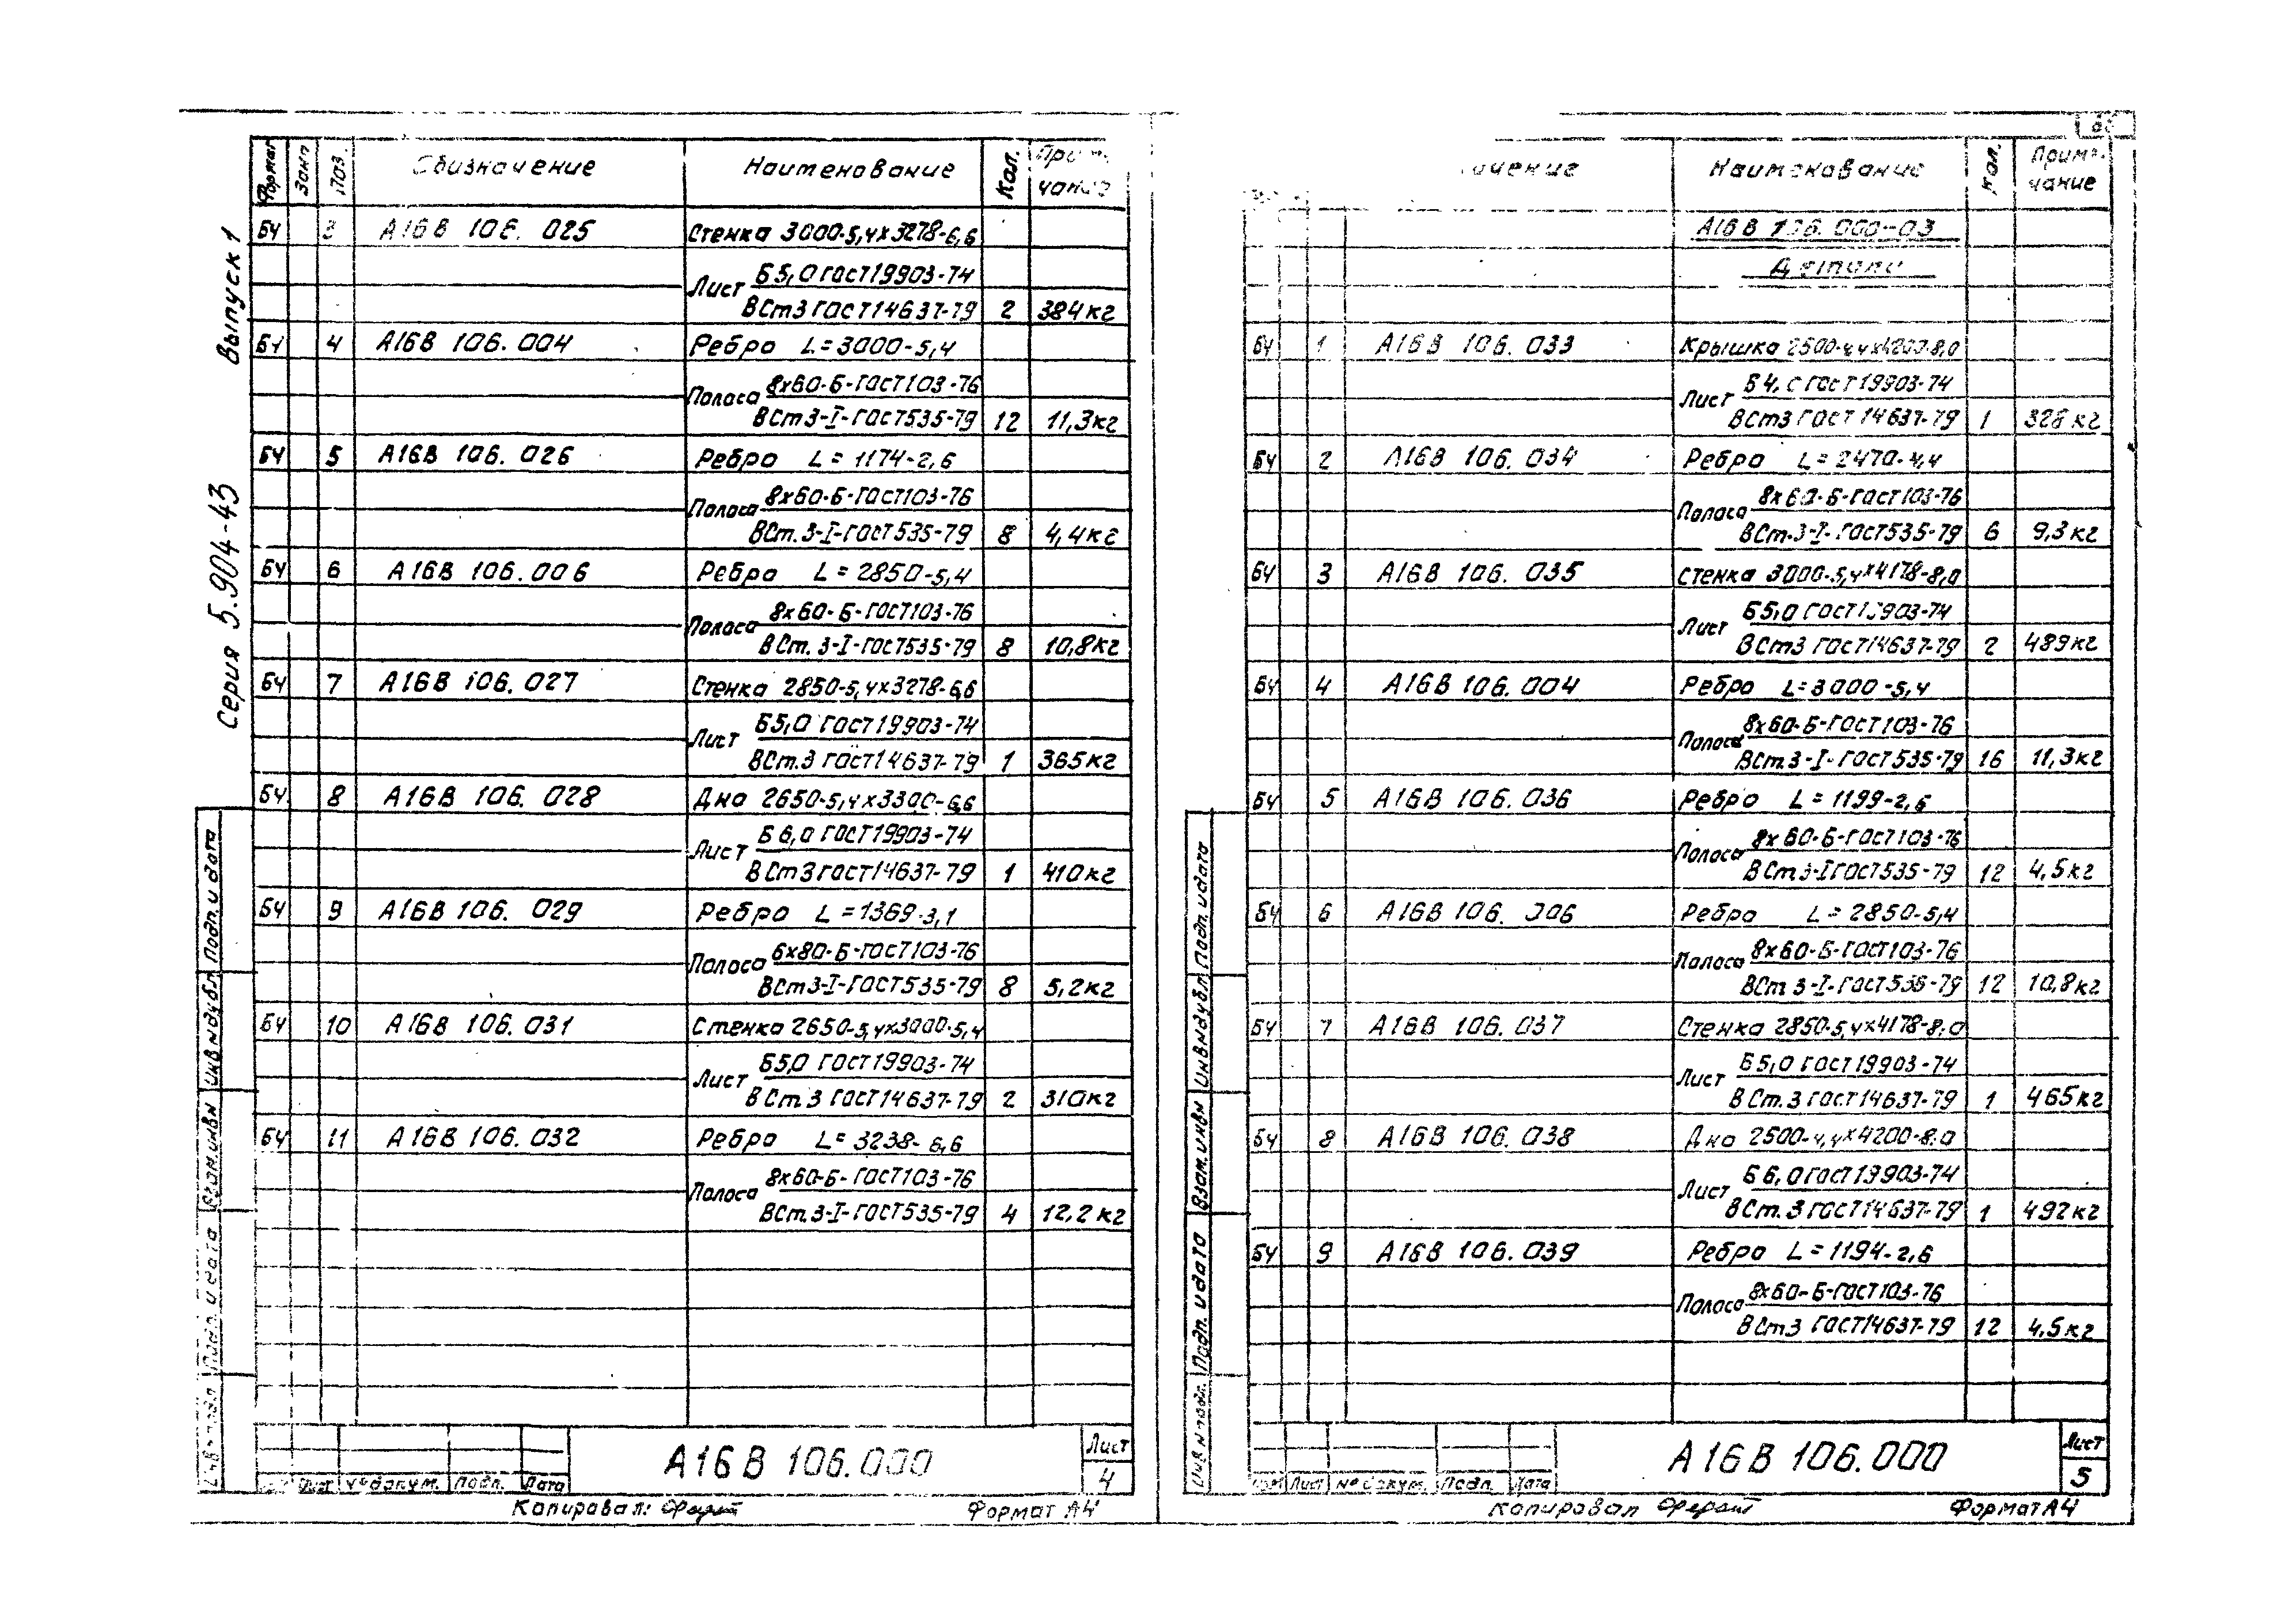 Серия 5.904-43 Выпуск 1
Формат Зона Поз. Обозначение Наименование Кол. Приме-
чание
БЧ 3 А16В 106.025 Стенка 3000-5,4х3278-6,6
Лист Б5,0 ГОСТ19903-74
ВСт3 ГОСТ14637-79 2 384кг
БЧ 4 А16В 106.004 Ребро L=3000-5,4
Полоса 8х60-Б-ГОСТ103-76
ВСт3-I-ГОСТ535-79 12 11,3кг
БЧ 5 А16В 106.026 Ребро L=1174-2,6
Полоса 8х60-Б-ГОСТ103-76
ВСт.3-I-ГОСТ535-79 8 4,4кг
БЧ 6 А16В 106.006 Ребро L=2850-5,4
Полоса 8х60-Б-ГОСТ103-76
ВСт.3-I-ГОСТ535-79 8 10,8кг
БЧ 7 А16В 106.027 Стенка 2850-5,4х3278-6,6
Лист Б5,0 ГОСТ19903-74
ВСт.3 ГОСТ14637-79 1 365кг
БЧ 8 А16В 106.028 Дно 2650-5,4х3300-6,6
Лист Б6,0 ГОСТ19903-74
ВСт3 ГОСТ14637-79 1 410кг
БЧ 9 А16В 106.029 Ребро L=1369-3,1
Полоса 6х80-Б-ГОСТ103-76
ВСт3-I-ГОСТ535-79 8 5,2кг
БЧ 10 А16В 106.031 Стенка 2650-5,4х3000-5,4
Лист Б5,0 ГОСТ19903-74
ВСт3 ГОСТ14637-79 2 310кг
БЧ 11 А16В 106.032 Ребро L=3238-6,6
Полоса 8х60-Б-ГОСТ103-76
ВСт.3-I-ГОСТ535-79 4 12,2кг
Инв № подл. Подп. и дата Взам. инв № Инв № дубл Подп. и дата
Лист № докум. Подп. Дата
А16В 106.000
Лист
4
Копировал: Формат А4
Наименование Кол. Приме-
чание
А16В 106.000-03
Детали
БЧ 1 А16В 106.033 Крышка 2500-4,4х4200-8,0
Лист Б4,0 ГОСТ19903-74
ВСт3 ГОСТ 14637-79 1 328кг
БЧ 2 А16В 106.034 Ребро L=2470-4,4
Полоса 8х60-Б-ГОСТ103-76
ВСт.3-I-ГОСТ535-79 6 9,3кг
БЧ 3 А16В 106.035 Стенка 3000-5,4х4178-8,0
Лист Б5,0 ГОСТ19903-74
ВСт3 ГОСТ14637-79 2 489кг
БЧ 4 А16В 106.004 Ребро L=3000-5,4
Полоса 8х60-Б-ГОСТ103-76
ВСт.3-I-ГОСТ535-79 16 11,3кг
БЧ 5 А16В 106.036 Ребро L=1199-2,6
Полоса 8х60-Б-ГОСТ103-76
ВСт3-I ГОСТ535-79 12 4,5кг
БЧ 6 А16В 106.006 Ребро L=2850-5,4
Полоса 8х60-Б-ГОСТ103-76
ВСт3-I-ГОСТ535-79 12 10,8кг
БЧ 7 А16В 106.037 Стенка 2850-5,4х4178-8,0
Лист Б5,0 ГОСТ19903-74
ВСт.3 ГОСТ14637-79 1 465кг
БЧ 8 А16В 106.038 Дно 2500-4,4х4200-8,0
Лист Б6,0 ГОСТ19903-74
ВСт.3 ГОСТ14637-79 1 492кг
БЧ 9 А16В 106.039 Ребро L=1194-2,6
Полоса 8х60-Б-ГОСТ103-76
ВСт3 ГОСТ14637-79 12 4,5кг
Инв № подл. Подп. и дата Взам. инв № Инв № дубл Подп. и дата
Изм Лист № докум. Подп. Дата
А16В 106.000
Лист
5
Копировал Формат А4